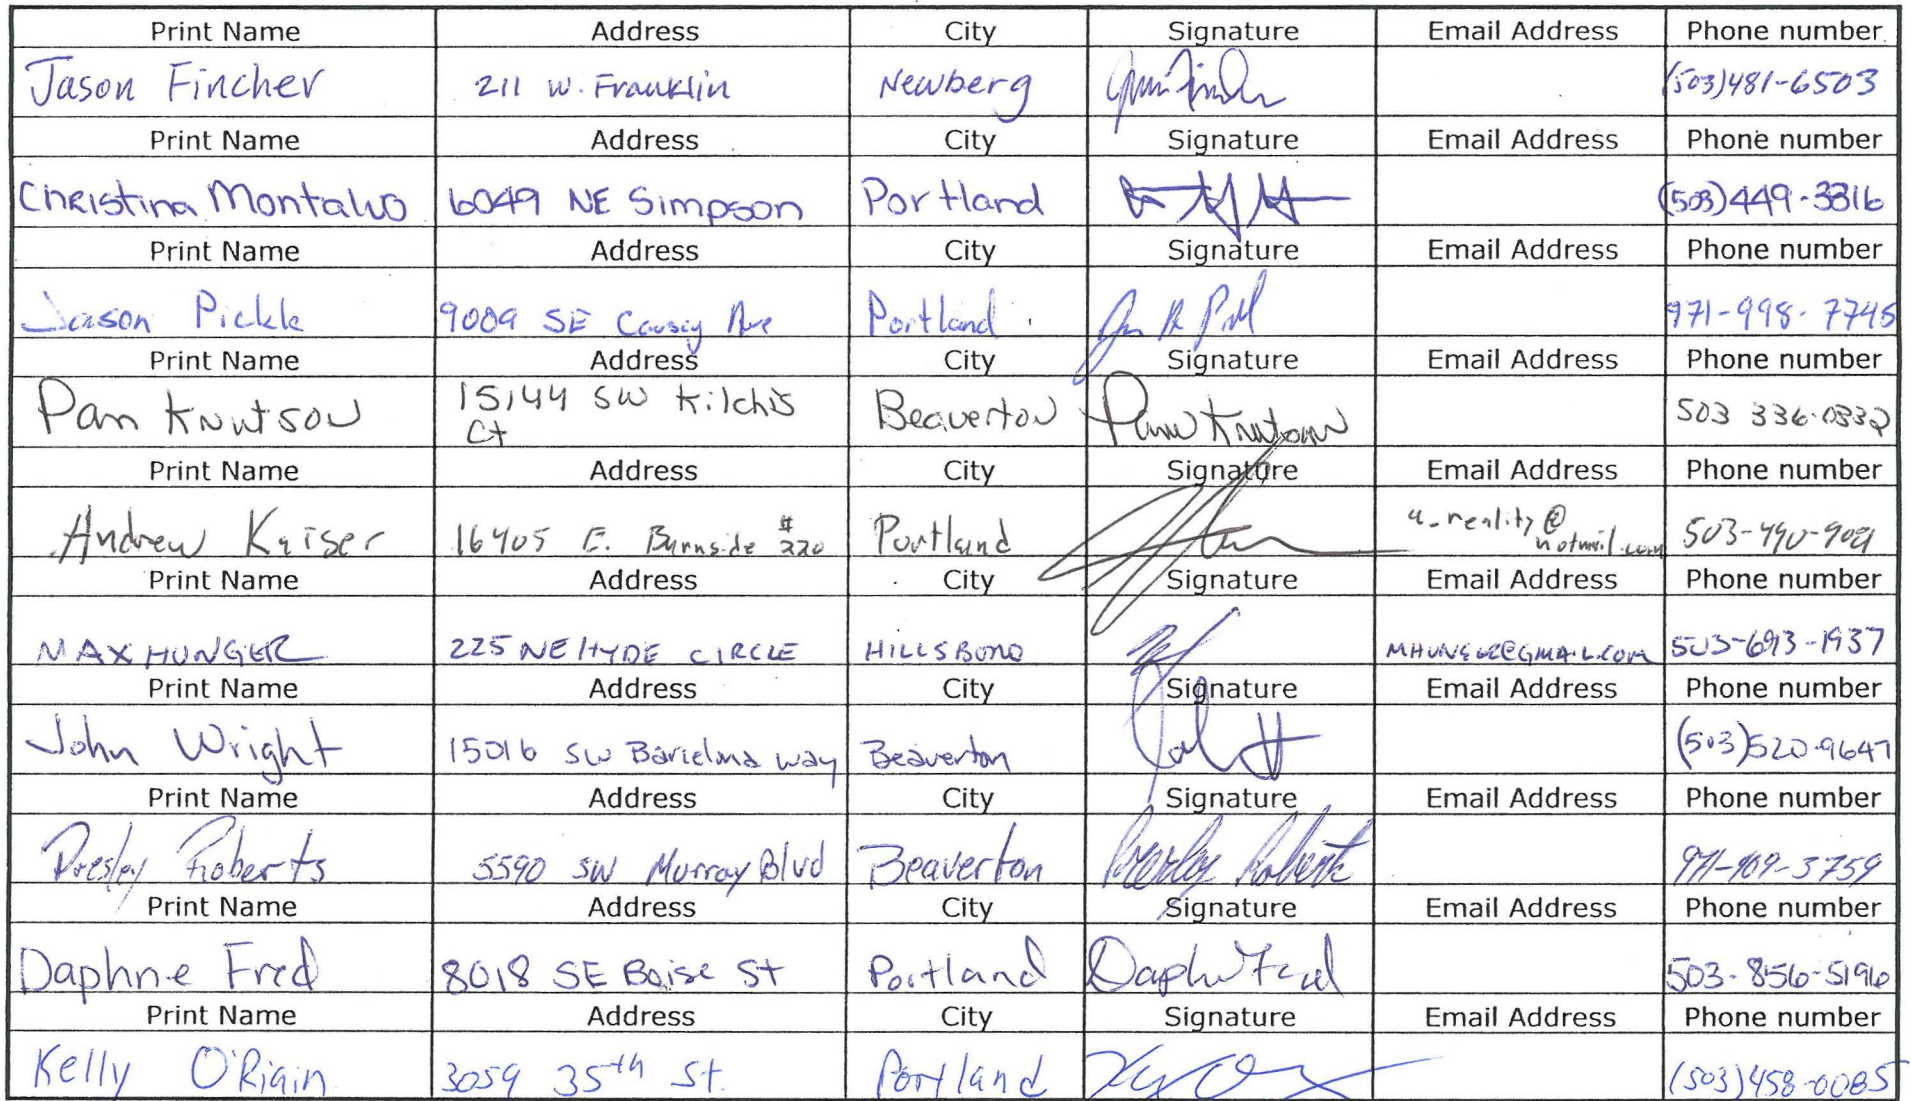 Print Name Address City Signature Email Address Phone number
Jason Fincher 211 W. Franklin Newberg (503)481-6503
Print Name Address City Signature Email Address Phone number
Christina Montalvo 6049 NE Simpson Portland (503)449-3316
Print Name Address City Signature Email Address Phone number
Jason Pickle 9009 SE Causey Ave Portland 971-998-7745
Print Name Address City Signature Email Address Phone number
Pam Knutson 15144 SW Kilchis Beaverton Pam Knutson 503 336-0332
Ct
Print Name Address City Signature Email Address Phone number
Andrew Kaiser 16405 E. Burnside #220 Portland a_reality@
hotmail.com
Print Name Address City Signature Email Address Phone number
MAX HUNGER 225 NE HYDE CIRCLE HILLSBORO 503-693-1937
Print Name Address City Signature Email Address Phone number
John Wright 15016 SW Barcelona way Beaverton (503)520-9647
Print Name Address City Signature Email Address Phone number
Presley Roberts 5590 SW Murray Blvd Beaverton Presley Roberts
Print Name Address City Signature Email Address Phone number
Daphne Fred 8018 SE Boise St Portland Daphne Fred 503-856-5196
Print Name Address City Signature Email Address Phone number
Kelly O'Riain 3059 35th St. Portland (503)458-0085